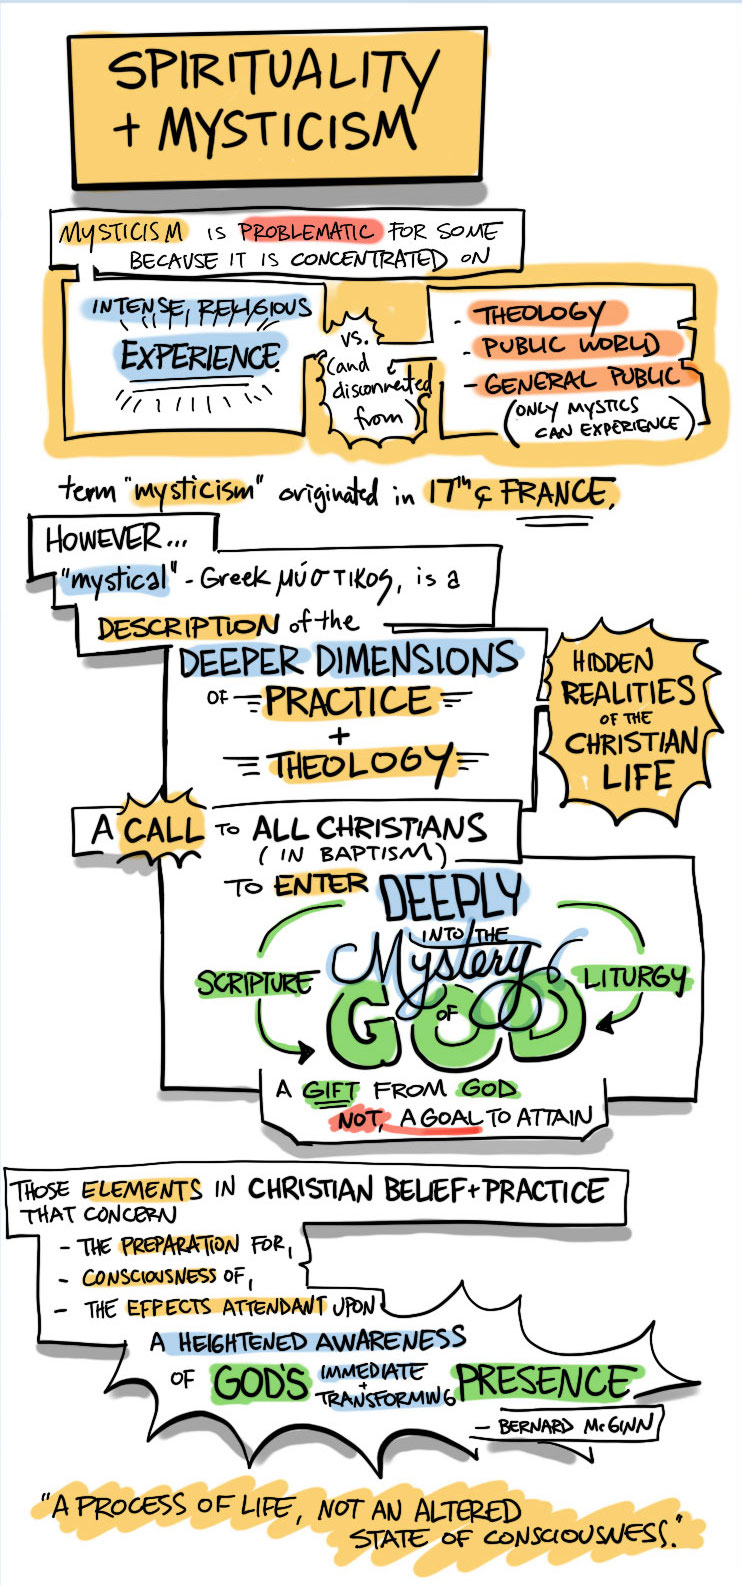 SPIRITUALITY
+ MYSTICISM
MYSTICISM IS PROBLEMATIC FOR SOME
BECAUSE IT IS CONCENTRATED ON
INTENSE, RELIGIOUS
EXPERIENCE
vs.
(and
disconnected
from)
- THEOLOGY
- PUBLIC WORLD
- GENERAL PUBLIC
(ONLY MYSTICS
CAN EXPERIENCE)
term "mysticism" originated in 17th C FRANCE.
HOWEVER...
"mystical" - Greek μύστικος, is a
DESCRIPTION of the
DEEPER DIMENSIONS
OF PRACTICE
+
THEOLOGY
HIDDEN
REALITIES
OF THE
CHRISTIAN
LIFE
A CALL TO ALL CHRISTIANS
(IN BAPTISM)
TO ENTER DEEPLY
INTO THE
Mystery
SCRIPTURE
LITURGY
OF
GOD
A GIFT FROM GOD
NOT, A GOAL TO ATTAIN
THOSE ELEMENTS IN CHRISTIAN BELIEF + PRACTICE
THAT CONCERN
- THE PREPARATION FOR,
- CONSCIOUSNESS OF,
- THE EFFECTS ATTENDANT UPON
A HEIGHTENED AWARENESS
OF GOD'S IMMEDIATE + TRANSFORMING PRESENCE
- BERNARD McGINN
"A PROCESS OF LIFE, NOT AN ALTERED
STATE OF CONSCIOUSNESS."